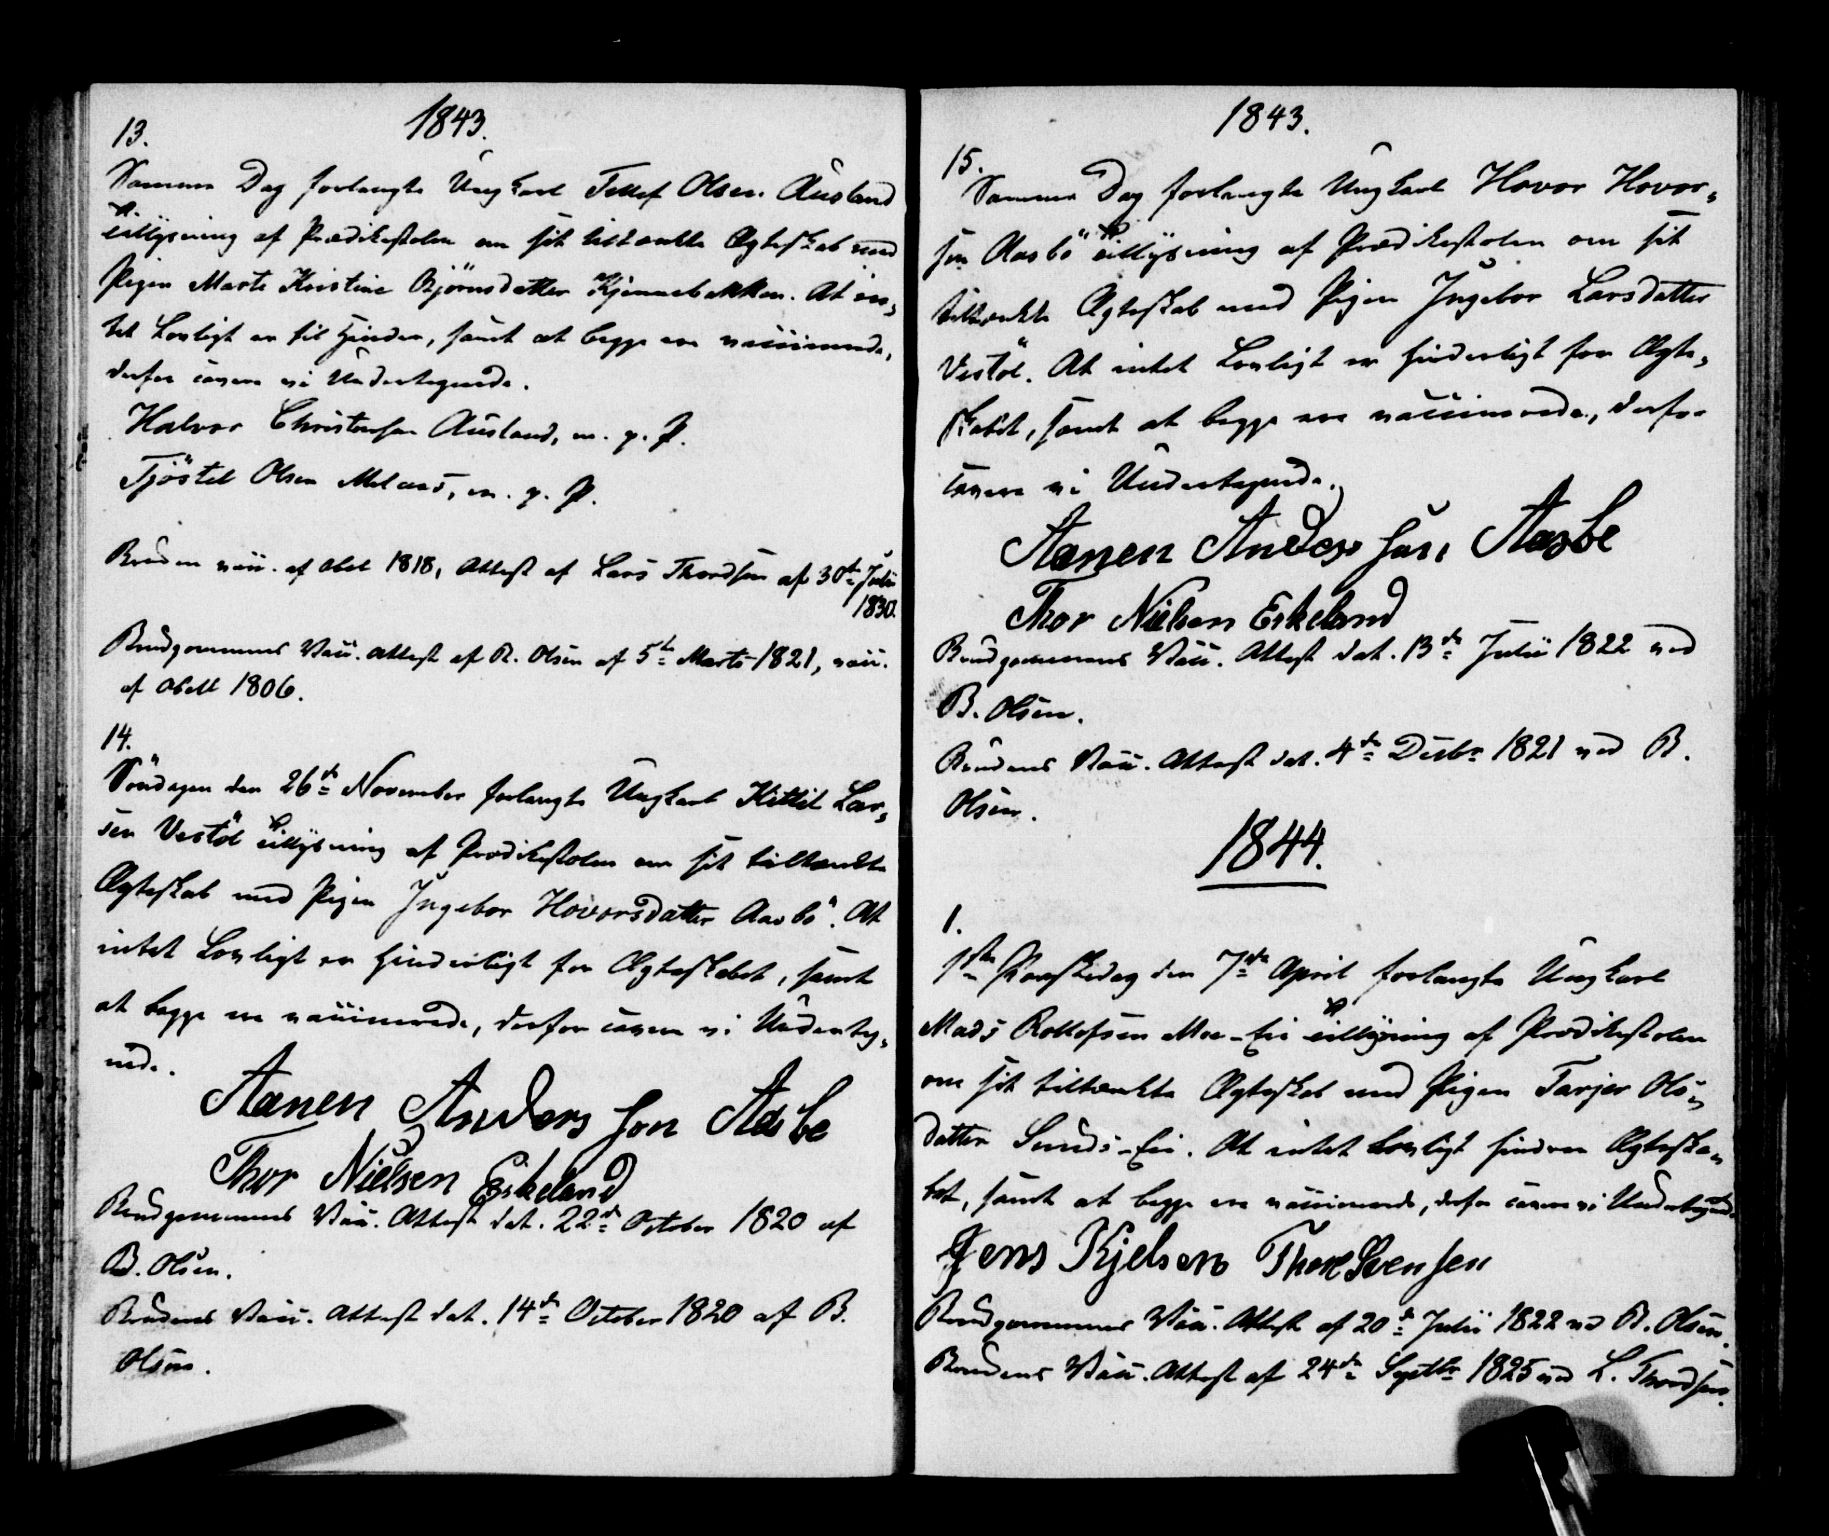 1843.
13.
Samme Dag forlangte Ungkarl Tellef Olsen Ausland
Tillysning af Prædikestolen om sit tiltænkte Ægteskab med
Pigen Marte Kristine Björnsdatter Kjennebakken. At in-
tet Lovligt er til Hinder, samt at begge ere vaccinerede,
derfor cavere vi Undertegnede.
Halvor Christensen Ausland, m. p. P.
Tjöstel Olsen Melaas, m. p. P.
Bruden vacc. af Abel 1818, Attest af Lars Thordsen af 30te Julii
1830.
Brudgommens Vacc. Attest af B. Olsen af 5te Marts 1821, vacc.
af Abell 1806.
14.
Söndagen den 26de November forlangte Ungkarl Kittil Lar-
sen Vestöl Tillysning af Prædikestolen om sit tiltænkte
Ægteskab med Pigen Ingebor Hovorsdatter Aasbö. At
intet Lovligt er hinderligt for Ægteskabet, samt
at begge ere vaccinerede, derfor cavere vi Underteg-
nede.
Aanen Anders son Aasbe
Thor Nielsen Eskeland
Brudgommens Vacc. Attest dat. 22de October 1820 af
B. Olsen.
Brudens Vacc. Attest dat. 14de October 1820 af B.
Olsen.
1843.
15.
Samme Dag forlangte Ungkarl Hovor Hovor-
sen Aasbö Tillysning af Prædikestolen om sit
tiltænkte Ægteskab med Pigen Ingebor Larsdatter
Vestöl. At intet Lovligt er hinderligt for Ægte-
skabet, samt at begge ere vaccinerede, derfor
cavere vi Undertegnede.
Aanen Anders son Aasbe
Thor Nielsen Eskeland
Brudgommens Vacc. Attest dat. 13de Julii 1822 ved
B. Olsen.
Brudens Vacc. Attest dat. 4de Decbr 1821 ved B.
Olsen.
1844.
1.
1ste Paaskedag den 7de April forlangte Ungkarl
Mads Rollefsen Moe-Eie Tillysning af Prædikestolen
om sit tiltænkte Ægteskab med Pigen Tarjer Ols-
datter Sunds-Eie. At intet Lovligt hindrer Ægteska-
bet, samt at begge ere vaccinerede, derfor cavere vi Undertegnede
Jens Kjelsen Thore Svensen
Brudgommens Vacc. Attest af 20de Julii 1822 ved B. Olsen.
Brudens Vacc. Attest af 24de Septbr 1825 ved L. Thordsen.